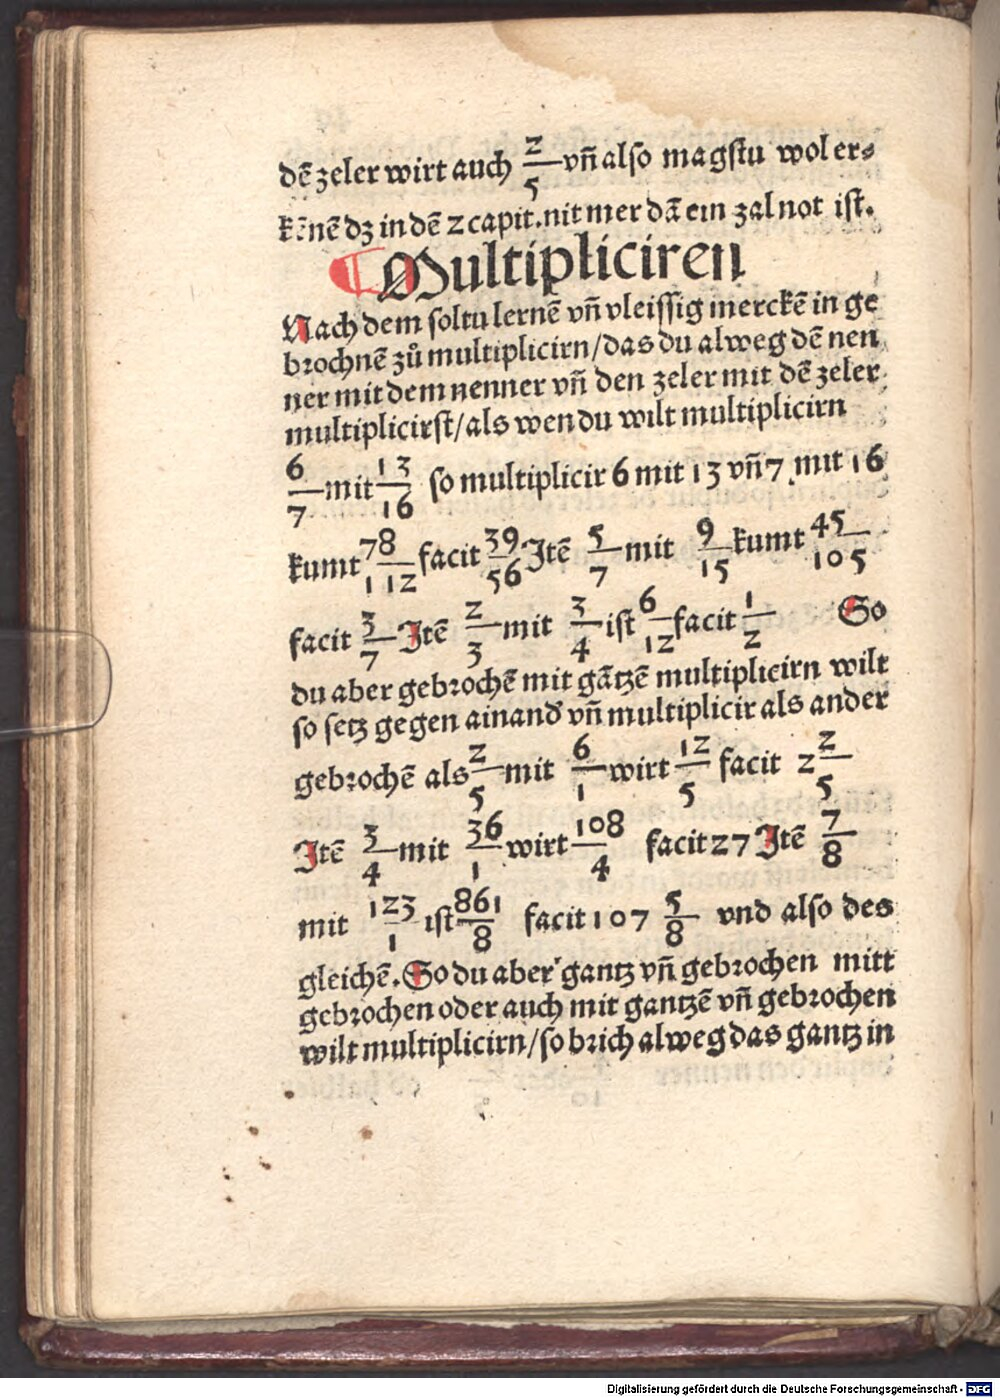 dē zeler wirt auch 2/5 vñ also magstu wol er⸗
kēnē dz in dē 2 capit. nit mer dā ein zal not ist.
Multipliciren
Nach dem soltu lernē vñ vleissig merckē in ge
brochnē zů multiplicirn/das du alweg dē nen
ner mit dem nenner vñ den zeler mit dē zeler
multiplicirst/als wen du wilt multiplicirn
6/7 mit 13/16 so multiplicir 6 mit 13 vñ 7 mit 16
kumt 78/112 facit 39/56 Itē 5/7 mit 9/15 kumt 45/105
facit 3/7 Itē 2/3 mit 3/4 ist 6/12 facit 1/2 So
du aber gebrochē mit gātzē multiplicirn wilt
so setz gegen ainand' vñ multiplicir als ander
gebrochē als 2/5 mit 6/1 wirt 12/5 facit 2 2/5
Itē 3/4 mit 36/1 wirt 108/4 facit 27 Itē 7/8
mit 123/1 ist 861/8 facit 107 5/8 vnd also des
gleichē. So du aber gantz vñ gebrochen mitt
gebrochen oder auch mit gantzē vñ gebrochen
wilt multiplicirn/so brich alweg das gantz in
Digitalisierung gefördert durch die Deutsche Forschungsgemeinschaft - DFG